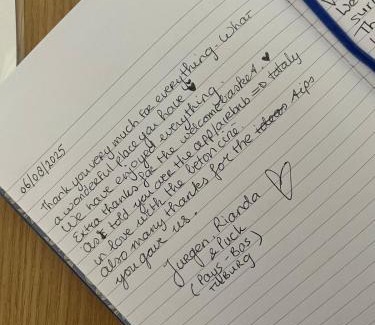 06/08/2025
Thank you very much for everything. What
a wonderful place you have ♥
We have enjoyed everything.
Extra thanks for the welcomebasket. ♥
as I told you over the app/airbnb =D totaly
in love with the beton ciré
also many thanks for the tips
you gave us.
Jurgen, Rianda
& Puck
(Pays-Bas
TILBURG)
We
Th